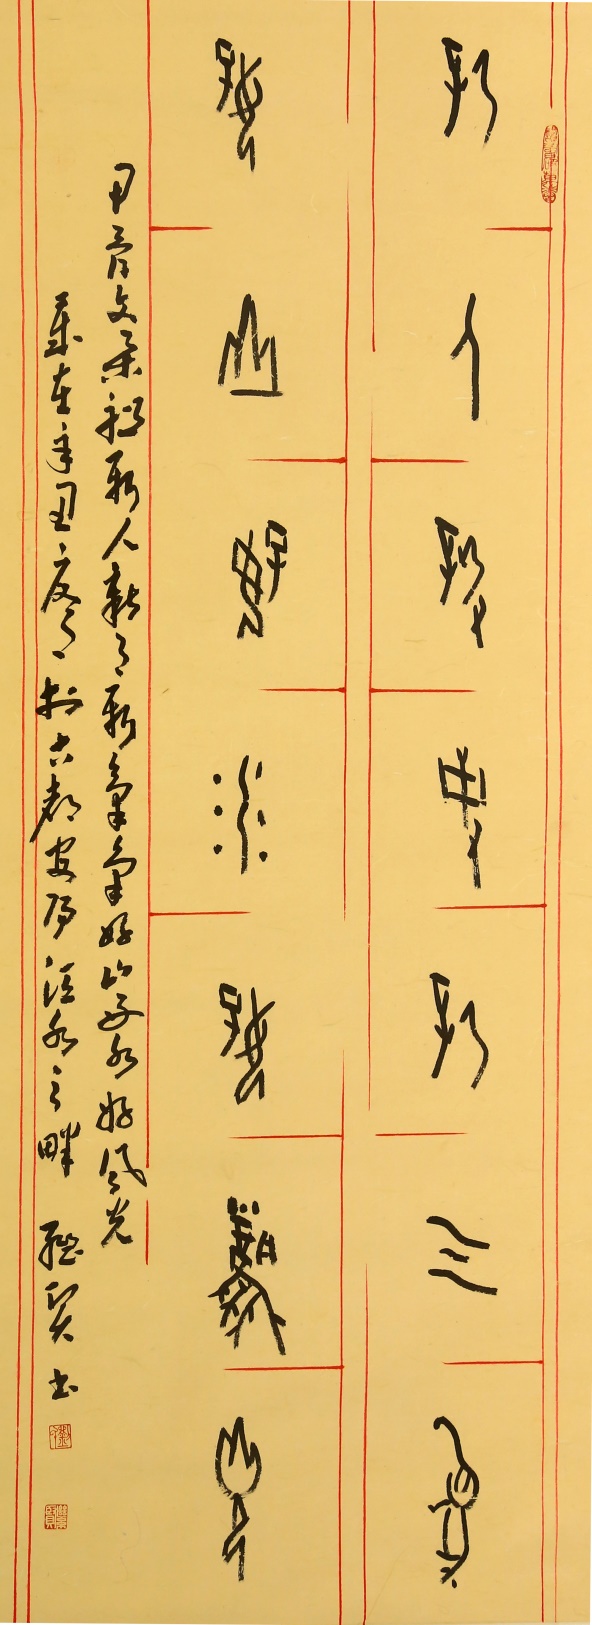 新人新事新气象
好山好水好風光
甲骨文集联新人新事新氣象好山好水好风光
歲在辛丑夏月於古都安陽洹水之畔 贤书